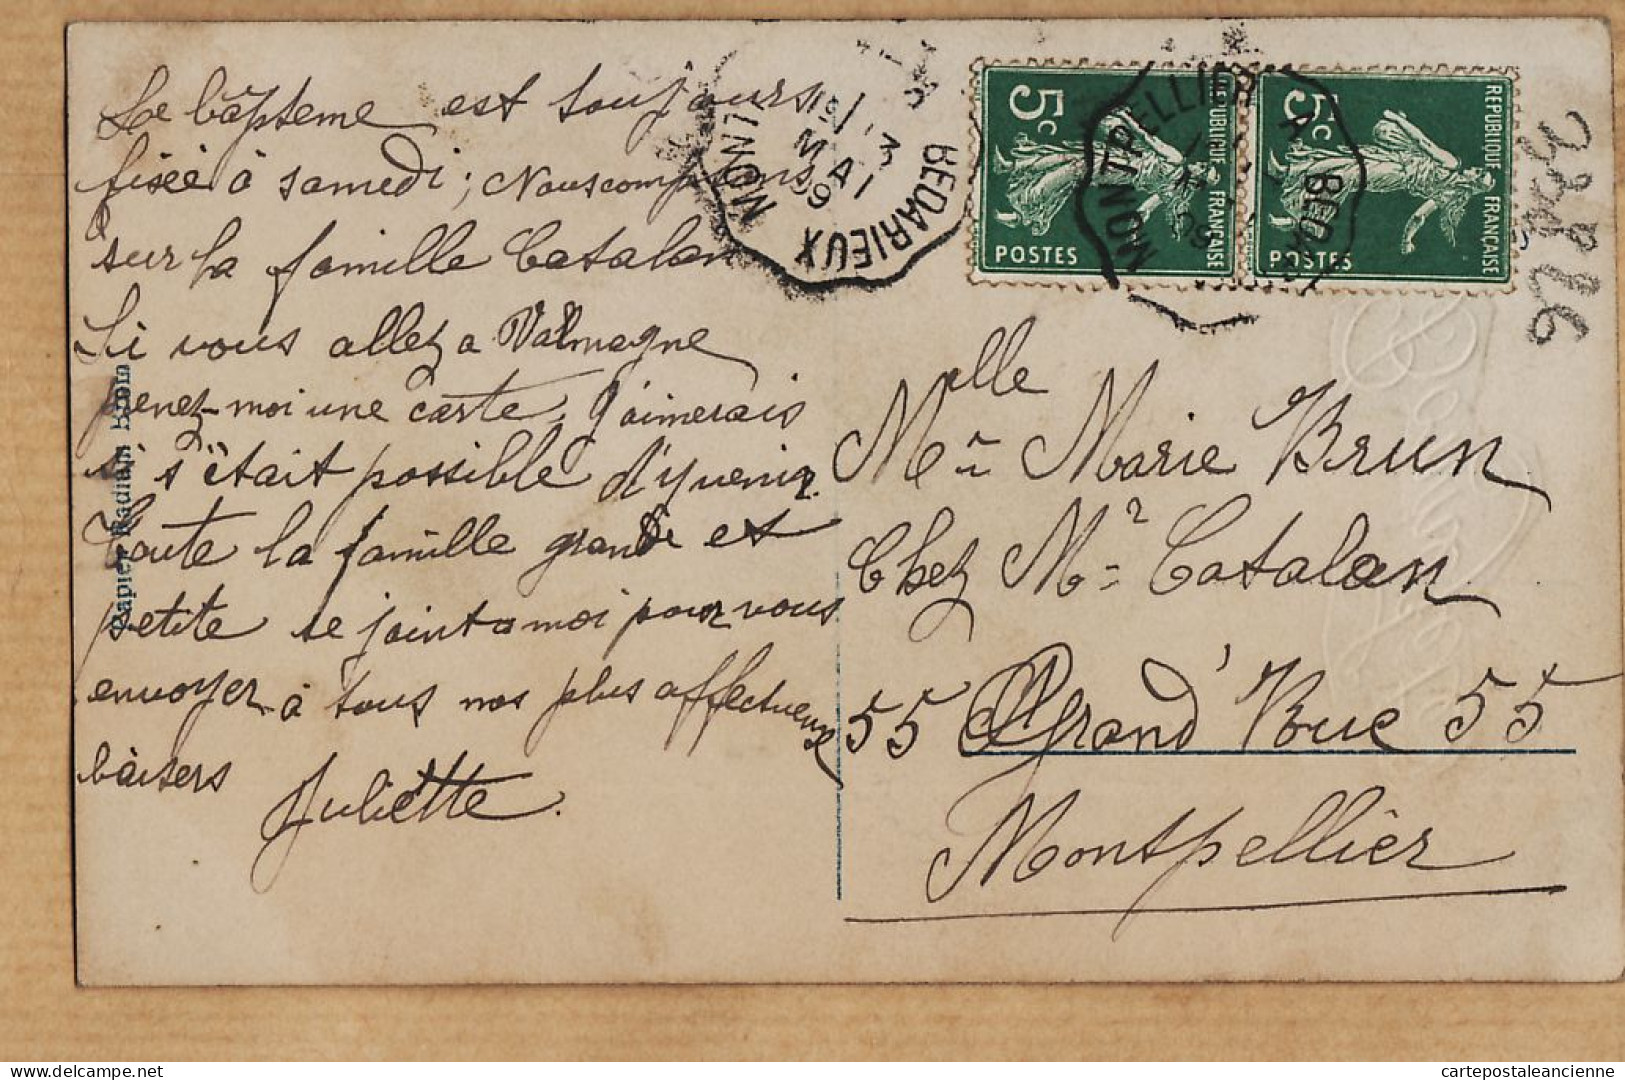 Le bapteme est toujours
fixée à samedi; Nous comptons
sur la famille Catalan
Si vous allez a Valmagne
prenez-moi une carte, J'aimerais
si s'était possible d'y venir.
Toute la famille grande et
petite se joint a moi pour vous
envoyer à tous nos plus affectueux
baisers
Juliette.
Papier Radium Brom
MONT BEDARIEUX
MAI
09
5c
REPUBLIQUE FRANÇAISE
POSTES
5c
REPUBLIQUE FRANÇAISE
POSTES
MONTPELLIER A BEDAR
09
Melle Marie Brun
Chez Mr Catalan
55 Grand'Rue 55
Montpellier
delcampe.net
cartepostaleancienne